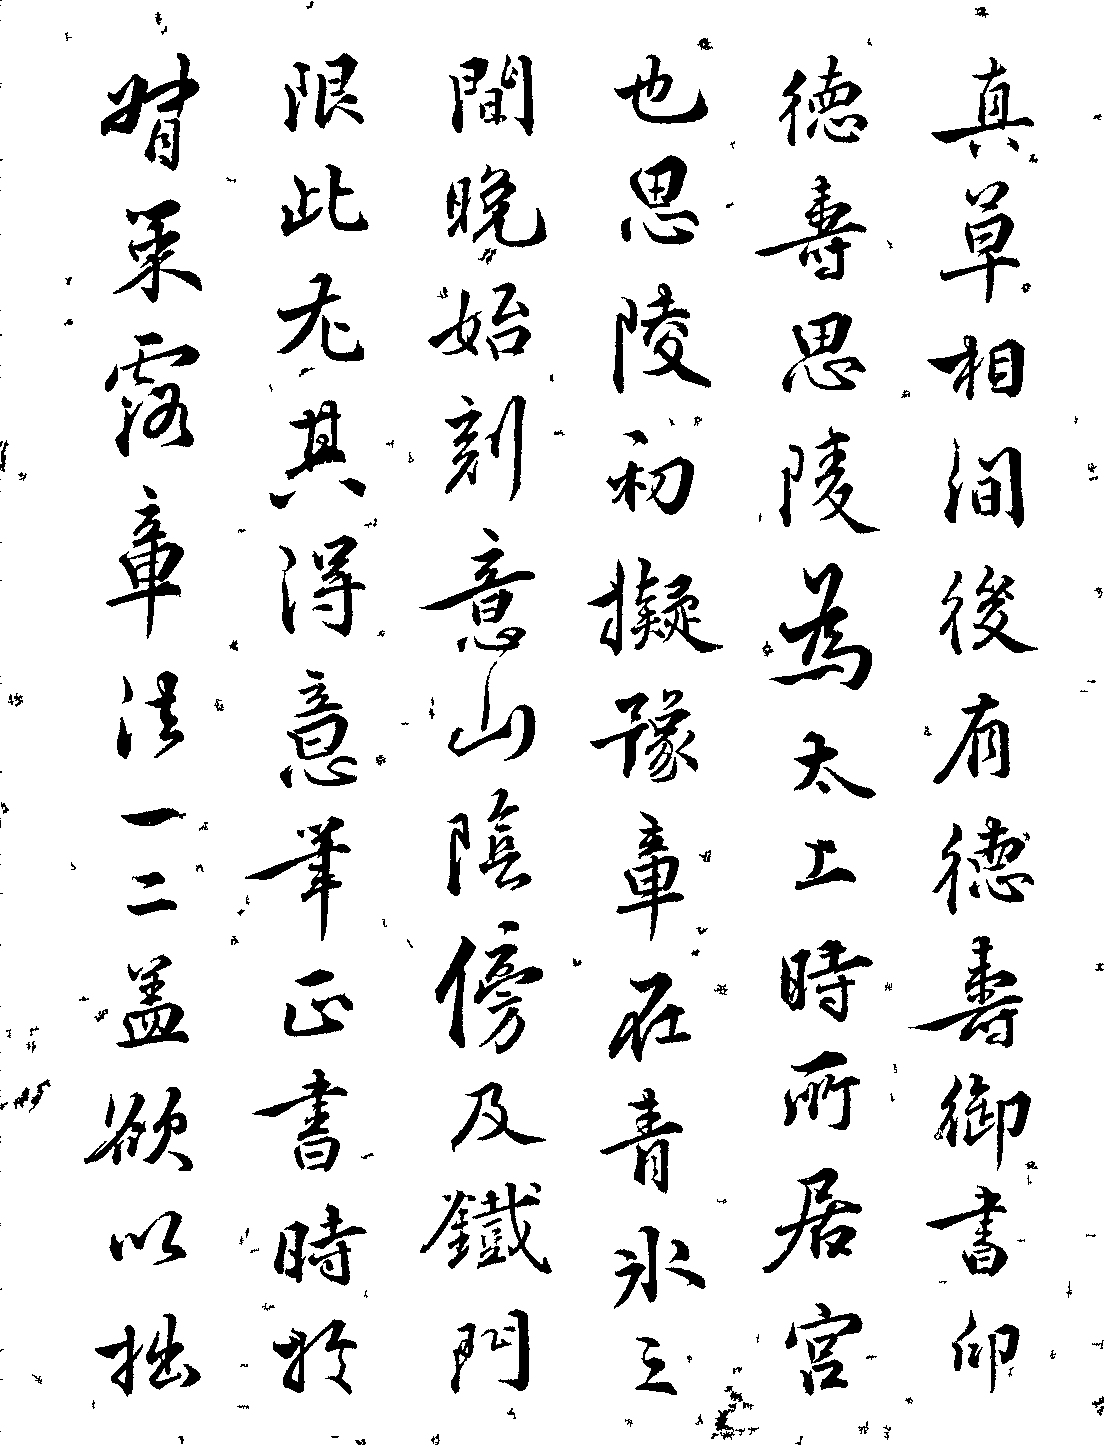 真草相間後有德壽御書印
德壽思陵為太上時所居宮
也思陵初擬豫章在青氷之
間晚始刻意山陰傍及鐵門
限此尤其得意筆正書時於
婿策露章法一二盖欲以拙